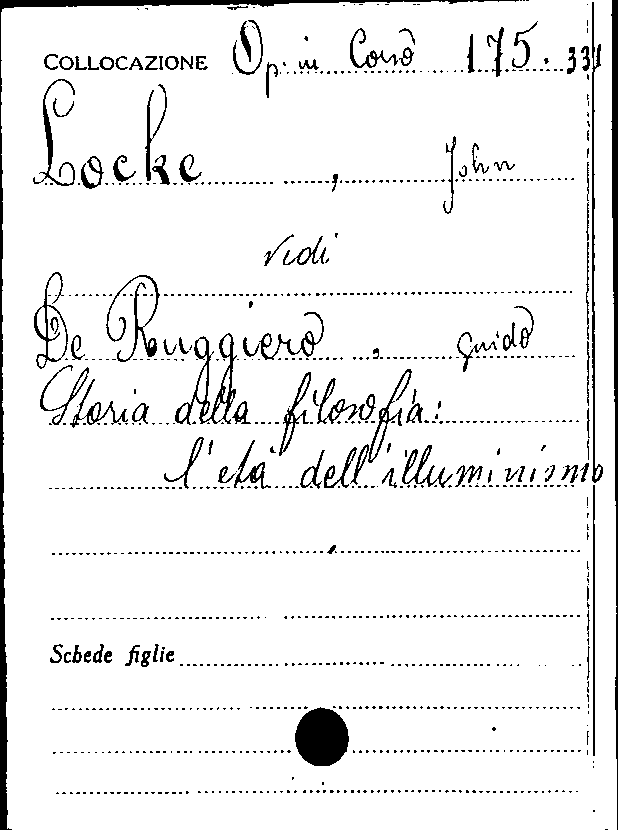 COLLOCAZIONE Op. in Corso 175.331
Locke, John
vedi
De Ruggiero, Guido
Storia della filosofia:
l'età dell'illuminismo
Schede figlie